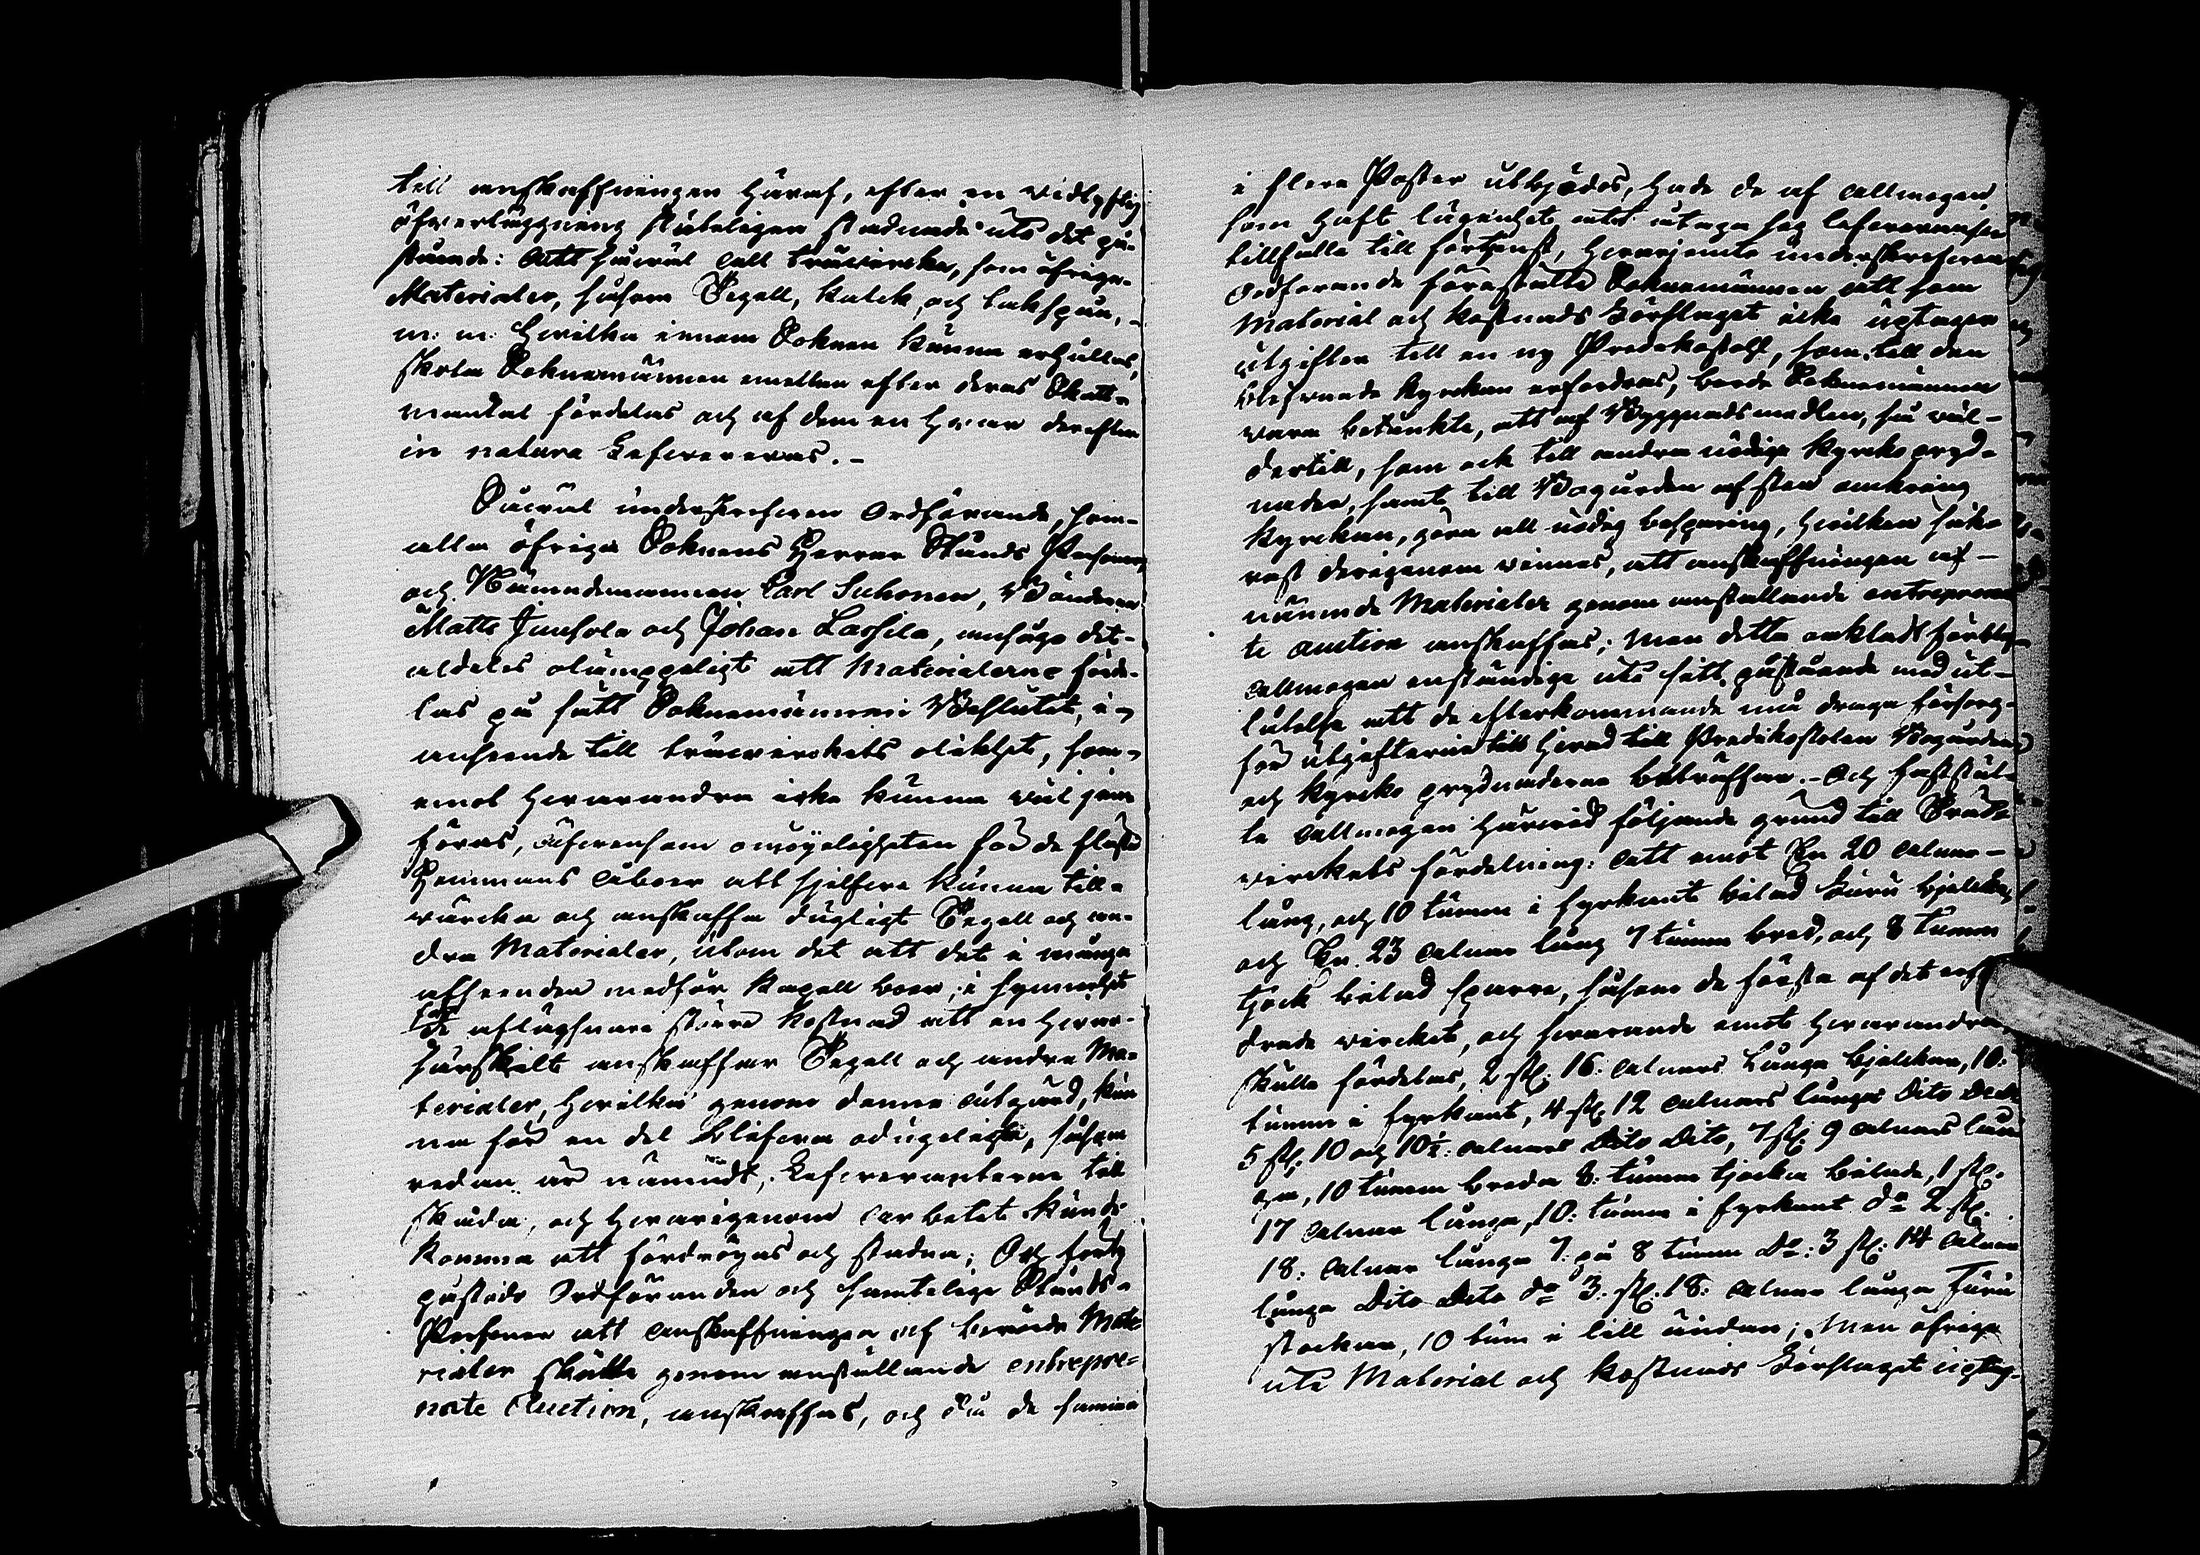 till anskaffningen häraf, efter en vidlyftig
öfverläggning sluteligen stadnade uti det på-
stående: att såwäl all träwircke, som öfriga
Materialer, såsom Tegell, Kalck, och takspån,
m: m: hwilka innom Soknen kunna erhållas,
skola Soknemännen emellan efter deras Skatt-
mantal fördelas och af dem en hwar derefter
in natura Lefwereras. -
Såwäl underskrefwen Ordförande, som
alla öfriga Soknens Herrar Stånds Personer,
och Nämndemannen Carl Suhonen, Bönderne
Matts Junsola och Johan Lassila, ansågo det
aldeles olämppeligt att Materialerne förde-
las på sätt Soknemännen Beslutit, i
anseende till träwirckets olikhet, som
emot hwarandra icke kunna wäl jäm
föras, äfwensom omöyeligheten för de fläste
Hemmans åboer att sjelfwa kunna till-
wärcka och anskaffa dugligt Tegell och an-
dra Materialer, utom det att det i många
afseenden medför Kapell boer, i synnerhet
för de aflägsnare större kostnad att en hwar
särskilt anskaffar Tegell och andra Ma-
terialer, hwilka genom denna utgård, kun
na för en del blifwa odugeliga, såsom
redan är nämndt, Lefweranterne till
skada, och hwarigenom arbetet kunde
komma att fördröyas och stadna; Och fortf
påstodo Ordföranden och samtelige Stånds-
Personer att anskaffningen af berörde Mate
rialer skulle genom anställande entrepre-
nate Auction, anskaffas, och då de samma
i flere Poster utbjödos, hade de af allmogen,
som haft lägenhet att åtaga sig lefwerancen
tillfälle till förtjenst, hwarjemte underskrefwen
Ordförande föreställte Soknemännen att som
Material och kostnads Förslaget icke uptager
utgiften till en ny Predikostohl, som till den
blifwande kyrckan erfordras, borde Soknemännen
wara betänkte, att af Byggnadsmedlen, så wäl
dertill, som ock till andra nödige kyrcko pryd-
nader, samt till Bogården af sten omkring
kyrckan, göra all nödig besparing, hwilken säk-
rast derigenom winnes, att anskaffningen af
nämnde Materialer genom anstallande entreprena
te auction anskaffas; men detta oaktadt förblef
allmogen enständige uti sitt påstående med ut-
låtelse att de efterkommande må draga försorg
för utgifterne till hwad till Predikostolen Bogården
och kyrcko prydnaderne beträffar. - Och faststäl-
te allmogen härwid följande grund till Träd-
wirckets fördelning: att emot En 20 alnar
lång, och 10 tumm i fyrkant bilad Furu bjelcke,
och En 23 alnar lång 7 tumm bred, och 8 tumm
tjock bilad sparre, såsom de första af det
drade wircket, och swarande emot hwarandra,
skulle fördelas, 2 st: 16: alnars Långa bjelckar, 10:
tumm i fyrkant, 4 st: 12 alnars långa Dito Dito
5 st: 10 och 10½: alnars Dito Dito, 7 st: 9 alnars lån
ga, 10 tumm breda 8: tumm tjocka bilade, 1 st:
17 alnar långa, 10: tumm i fyrkant do 2 st:
18: alnar långa 7: på 8 tumm Do: 3 st: 14 alnar
långa Dito Dito do 3. st: 18: alnar långa Furu
stockar, 10 tum i lill ändan; Men öfrige
uti Material och kostnads Förslaget uptag-